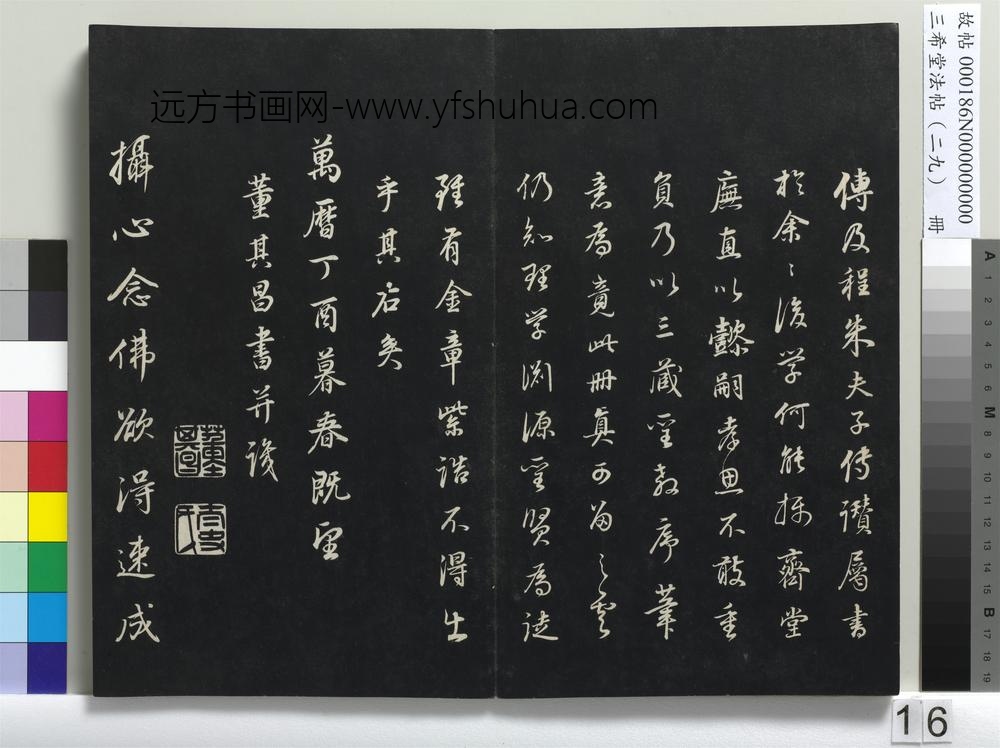 傳及程朱夫子傳讚屬書
於余余後學何能摳齊堂
廡直以懿嗣孝思不敢重
負乃以三藏聖教序筆
意為竟此冊真可寶
仍知理學淵源聖賢為徒
雖有金章紫誥不得出
乎其右矣
萬曆丁酉暮春既望
董其昌書并識
攝心念佛欲得速成
远方书画网-www.yfshuhua.com
故帖 000186N000000000
三希堂法帖（二九） 冊
A 1 2 3 4 5 6 M 8 9 10 11 12 13 14 15 B 17 18 19
16